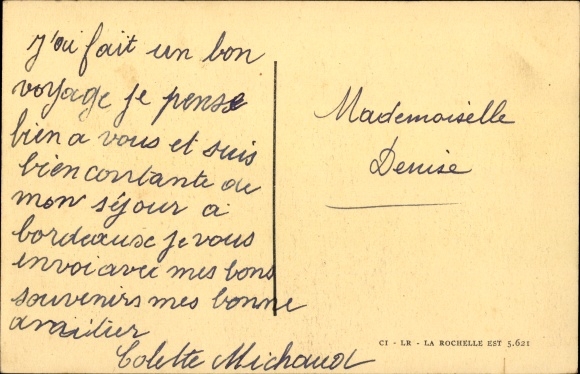 J'ai fait un bon
voyage je pense
bien a vous et suis
bien contante de
mon séjour a
bordeause je vous
envoi avec mes bons
souvenirs mes bonne
amitier
Colette Michaud
Mademoiselle
Denise
CI - LR - LA ROCHELLE EST 5.621